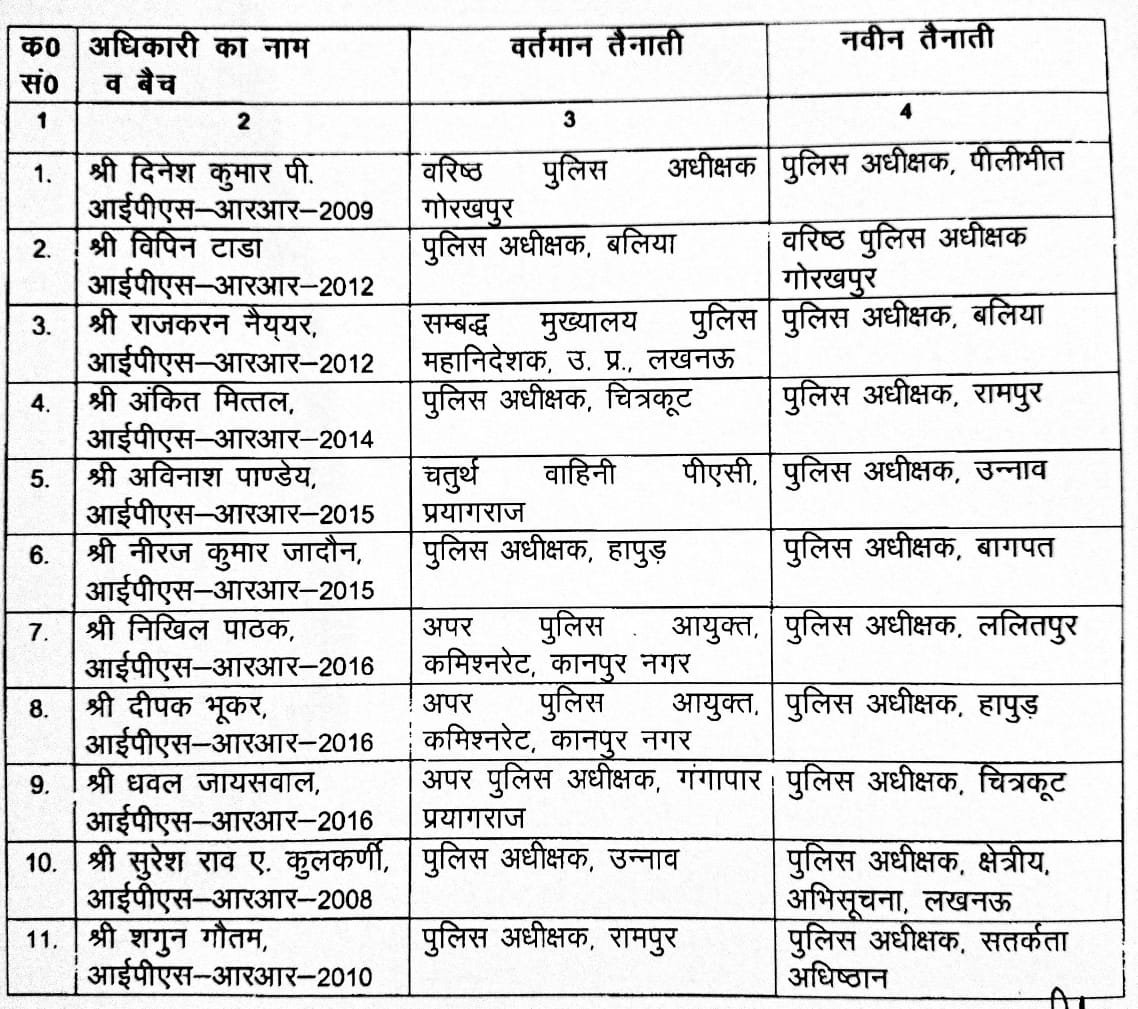 क0 अधिकारी का नाम वर्तमान तैनाती नवीन तैनाती
सं0 व बैच
1 2 3 4
1. श्री दिनेश कुमार पी. वरिष्ठ पुलिस अधीक्षक पुलिस अधीक्षक, पीलीभीत
आईपीएस–आरआर–2009 गोरखपुर
2. श्री विपिन टाडा पुलिस अधीक्षक, बलिया वरिष्ठ पुलिस अधीक्षक
आईपीएस–आरआर–2012 गोरखपुर
3. श्री राजकरन नैय्यर, सम्बद्ध मुख्यालय पुलिस पुलिस अधीक्षक, बलिया
आईपीएस–आरआर–2012 महानिदेशक, उ. प्र., लखनऊ
4. श्री अंकित मित्तल, पुलिस अधीक्षक, चित्रकूट पुलिस अधीक्षक, रामपुर
आईपीएस–आरआर–2014
5. श्री अविनाश पाण्डेय, चतुर्थ वाहिनी पीएसी, पुलिस अधीक्षक, उन्नाव
आईपीएस–आरआर–2015 प्रयागराज
6. श्री नीरज कुमार जादौन, पुलिस अधीक्षक, हापुड़ पुलिस अधीक्षक, बागपत
आईपीएस–आरआर–2015
7. श्री निखिल पाठक, अपर पुलिस आयुक्त, पुलिस अधीक्षक, ललितपुर
आईपीएस–आरआर–2016 कमिश्नरेट, कानपुर नगर
8. श्री दीपक भूकर, अपर पुलिस आयुक्त, पुलिस अधीक्षक, हापुड़
आईपीएस–आरआर–2016 कमिश्नरेट, कानपुर नगर
9. श्री धवल जायसवाल, अपर पुलिस अधीक्षक, गंगापार पुलिस अधीक्षक, चित्रकूट
आईपीएस–आरआर–2016 प्रयागराज
10. श्री सुरेश राव ए. कुलकर्णी, पुलिस अधीक्षक, उन्नाव पुलिस अधीक्षक, क्षेत्रीय,
आईपीएस–आरआर–2008 अभिसूचना, लखनऊ
11. श्री शगुन गौतम, पुलिस अधीक्षक, रामपुर पुलिस अधीक्षक, सतर्कता
आईपीएस–आरआर–2010 अधिष्ठान